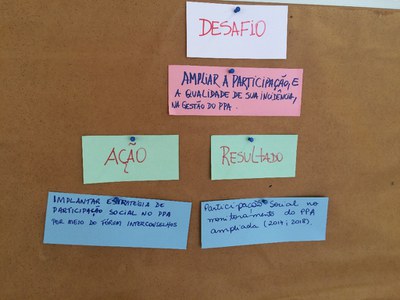 DESAFIO
AMPLIAR A PARTICIPAÇÃO, E
A QUALIDADE DE SUA INCIDÊNCIA,
NA GESTÃO DO PPA.
AÇÃO
RESULTADO
IMPLANTAR ESTRATÉGIA DE
PARTICIPAÇÃO SOCIAL NO PPA
POR MEIO DO FÓRUM INTERCONSELHOS
Participação social no
monitoramento do PPA
ampliada (2014; 2018).